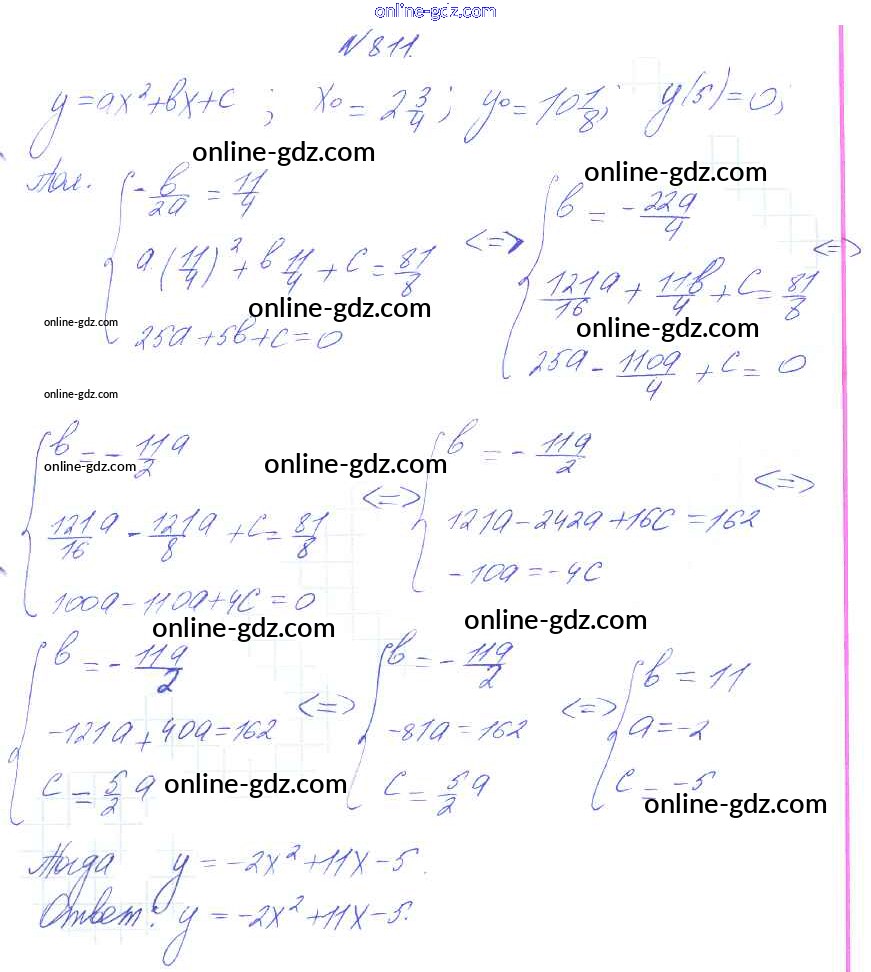 online-gdz.com
N 811.
y = ax² + bx + c ; x₀ = 2 3/4 ; y₀ = 10 1/8 ; y(5) = 0 ;
online-gdz.com
online-gdz.com
{ -b/2a = 11/4
a(11/4)² + b 11/4 + c = 81/8
25a + 5b + c = 0
<=>
{ b = -22a/4
121a/16 + 11b/4 + c = 81/8
25a - 110a/4 + c = 0
<=>
online-gdz.com
online-gdz.com
online-gdz.com
online-gdz.com
{ b = -11a/2
121a/16 - 121a/8 + c = 81/8
100a - 110a + 4c = 0
<=>
{ b = -11a/2
121a - 242a + 16c = 162
-10a = -4c
<=>
online-gdz.com
online-gdz.com
online-gdz.com
online-gdz.com
{ b = -11a/2
-121a + 40a = 162
c = 5/2 a
<=>
{ b = -11a/2
-81a = 162
c = 5/2 a
<=>
{ b = 11
a = -2
c = -5
online-gdz.com
online-gdz.com
Тогда y = -2x² + 11x - 5.
Ответ: y = -2x² + 11x - 5.